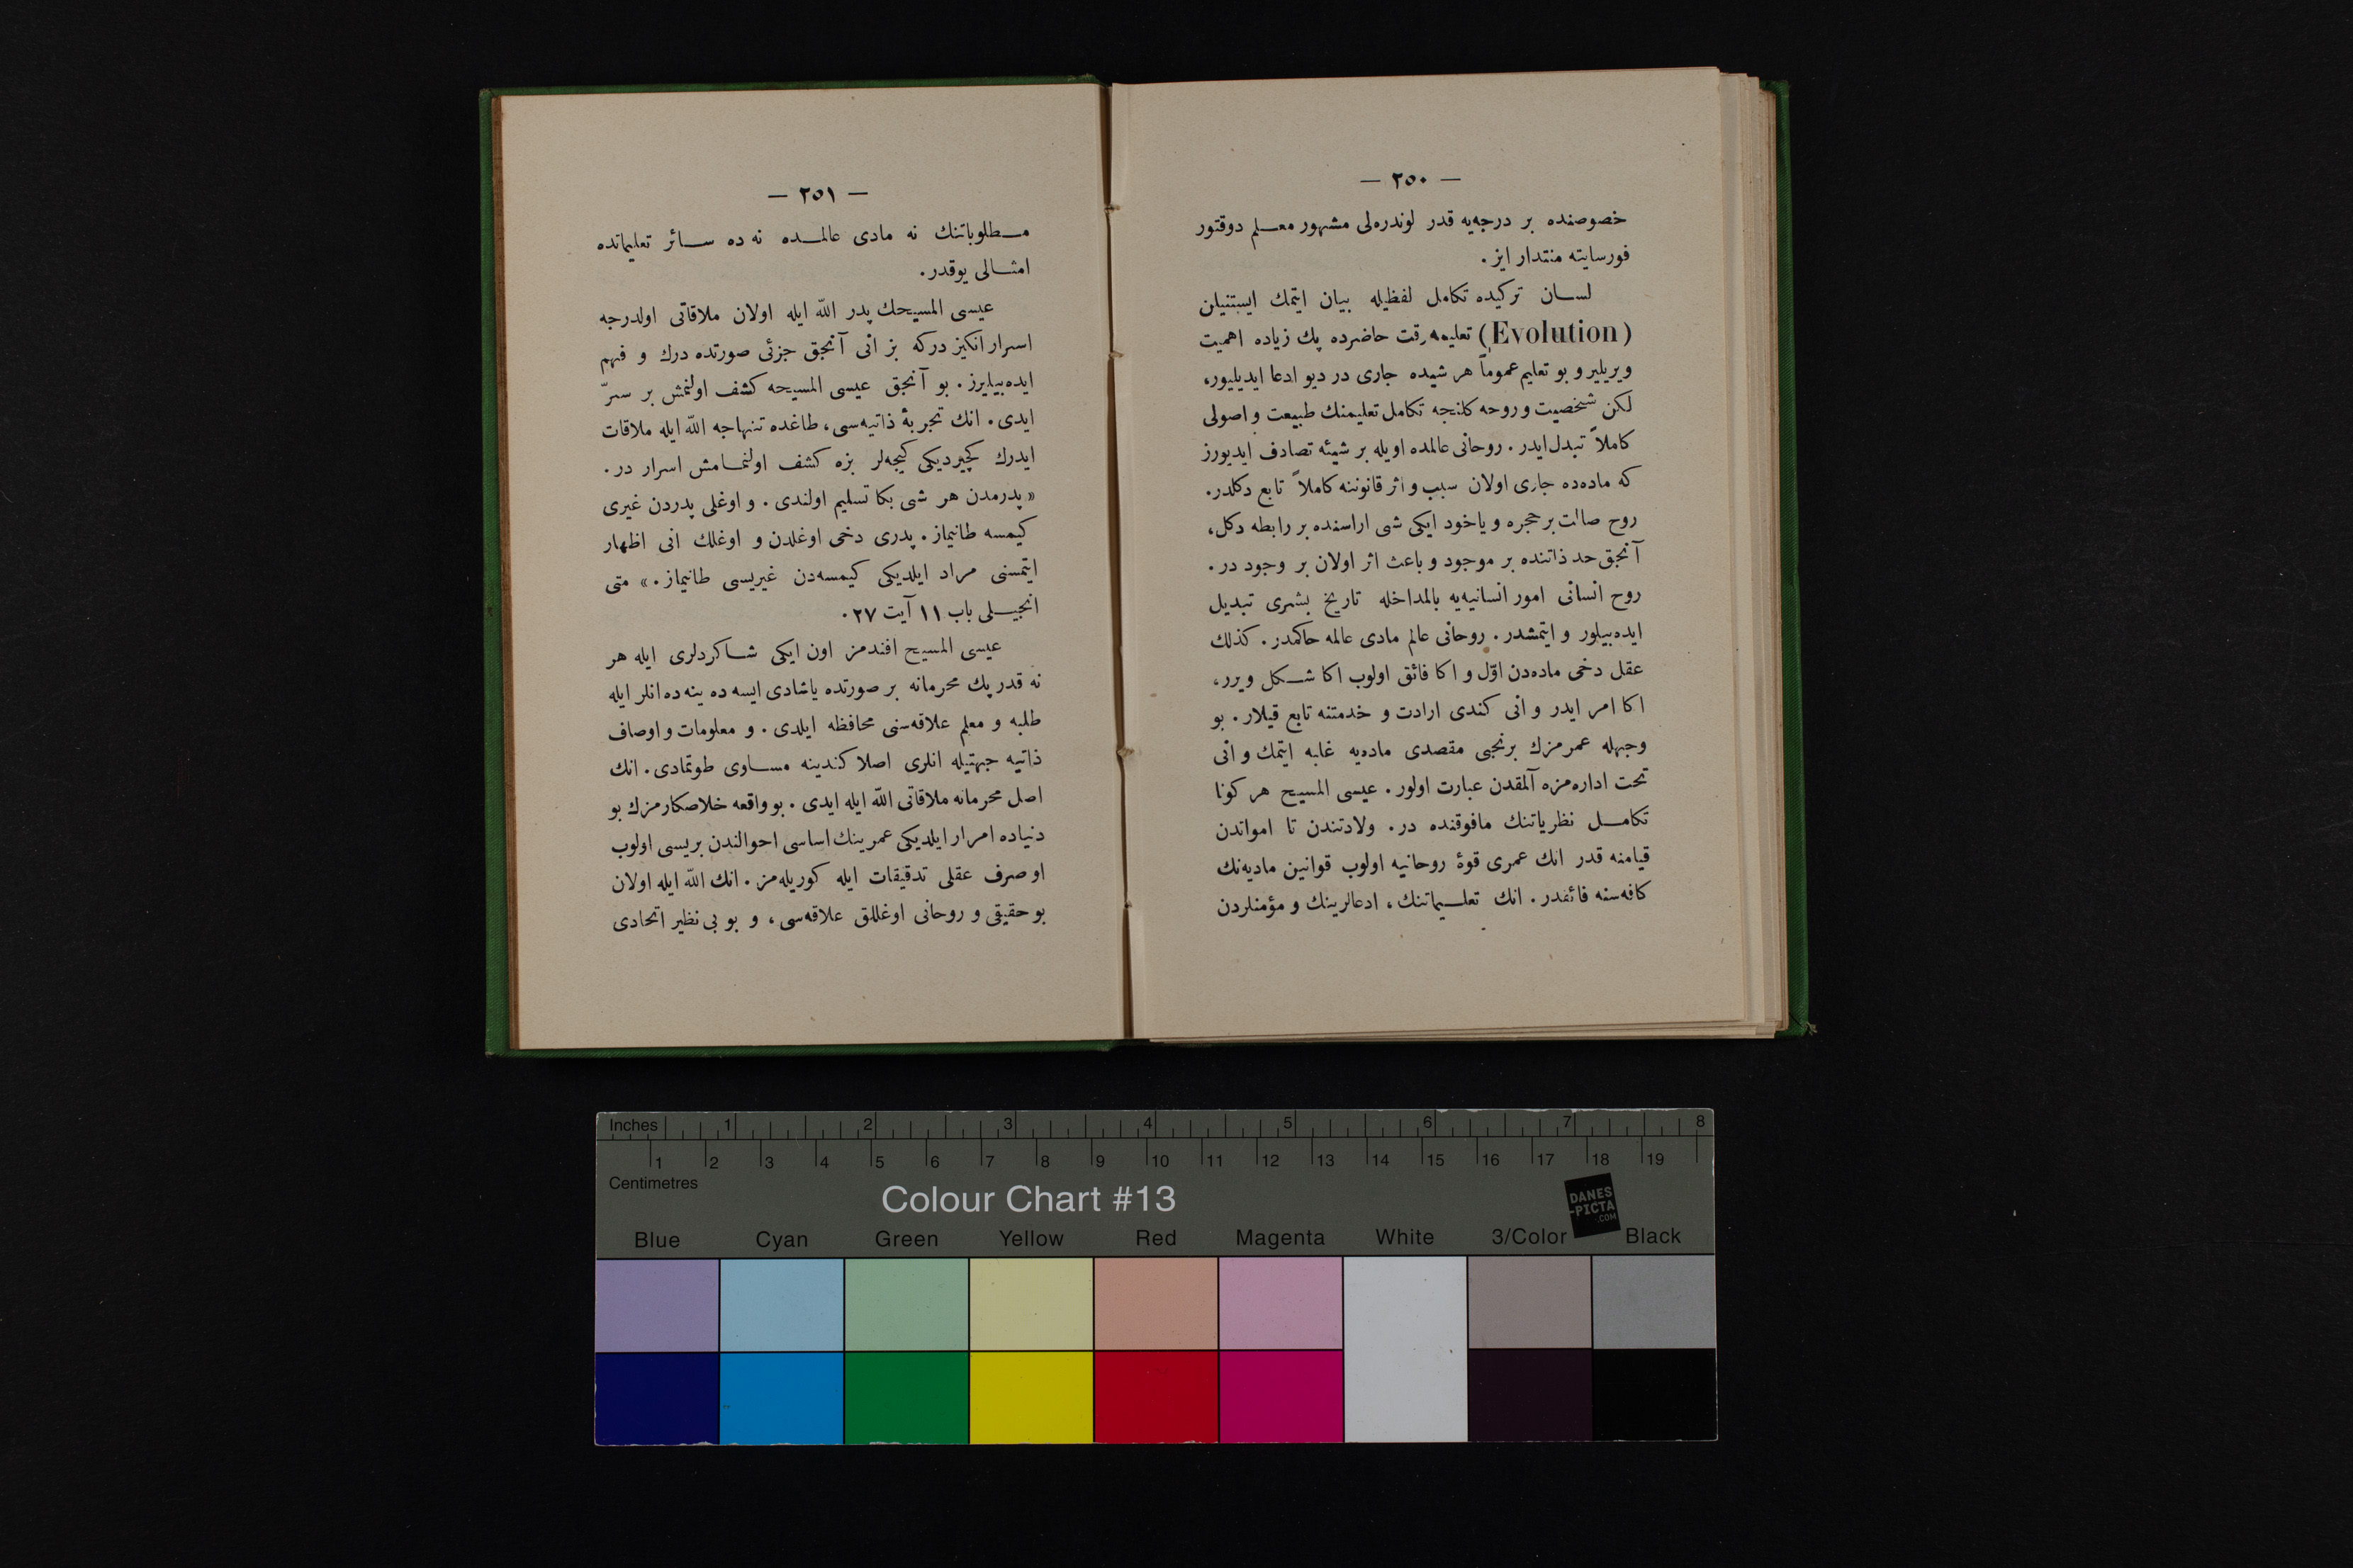 — ٢٥٠ —
خصوصنده بر درجه‌یه قدر لوندره‌لی مشهور معلم دوقتور
فورسایته منتدار ایز .
لسان ترکیده تکامل لفظیله بیان ایتمك ایستنیلن
(Evolution) تعلیمه رقت حاضرده پك زیاده اهمیت
ویریلیر و بو تعلیم عموماً هر شیده جاری در دیو ادعا ایدیلیور،
لکن شخصیت و روحه کلنجه تکامل تعلیمنك طبیعت و اصولی
کاملاً تبدل ایدر . روحانی عالمده اویله بر شیئه تصادف ایدیورز
که ماده‌ده جاری اولان سبب و اثر قانوننه کاملاً تابع دکلدر.
روح صاات بر حجره و یاخود ایکی شی اراسنده بر رابطه دکل،
آنجق حد ذاتنده بر موجود و باعث اثر اولان بر وجود در .
روح انسانی امور انسانیه‌یه بالمداخله تاریخ بشری تبدیل
ایده‌بیلور و ایتمشدر . روحانی عالم مادی عالمه حاکمدر . کذلك
عقل دخی ماده‌دن اوّل و اکا فائق اولوب اکا شکل ویرر،
اکا امر ایدر و انی کندی ارادت و خدمتنه تابع قیلار . بو
وجهله عمرمزك برنجی مقصدی ماده‌یه غلبه ایتمك و انی
تحت اداره‌مزه آلمقدن عبارت اولور . عیسی المسیح هر کونا
تکامل نظریاتنك مافوقنده در . ولادتندن تا امواتدن
قیامنه قدر انك عمری قوهٔ روحانیه اولوب قوانین مادیه‌نك
کافه‌سنه فائقدر . انك تعلیماتنك ، ادعالرینك و مؤمنلردن
— ٢٥١ —
مطلوباتنك نه مادی عالمده نه ده سائر تعلیماتده
امثالی یوقدر.
عیسی المسیحك پدر اللّه ایله اولان ملاقاتی اولدرجه
اسرار انکیز درکه بز انی آنجق جزئی صورتده درك و فهم
ایده‌بیلیرز . بو آنجق عیسی المسیحه کشف اولنمش بر سرّ
ایدی . انك تجربهٔ ذاتیه‌سی ، طاغده تنهاجه اللّه ایله ملاقات
ایدرك کچیردیکی کیجه‌لر بزه کشف اولنمامش اسرار در .
« پدرمدن هر شی بکا تسلیم اولندی . و اوغلی پدردن غیری
کیمسه طانیماز . پدری دخی اوغلدن و اوغلك انی اظهار
ایتمسنی مراد ایلدیکی کیمسه‌دن غیریسی طانیماز . » متی
انجیلی باب ١١ آیت ٢٧ .
عیسی المسیح افندمز اون ایکی شاکردلری ایله هر
نه قدر پك محرمانه بر صورتده یاشادی ایسه ده ینه ده انلر ایله
طلبه و معلم علاقه‌سنی محافظه ایلدی . و معلومات و اوصاف
ذاتیه جهتیله انلری اصلا کندینه مساوی طوتمادی . انك
اصل محرمانه ملاقاتی اللّه ایله ایدی . بو واقعه خلاصکارمزك بو
دنیاده امرار ایلدیکی عمرینك اساسی احوالندن بریسی اولوب
او صرف عقلی تدقیقات ایله کوریله‌مز . انك اللّه ایله اولان
بو حقیقی و روحانی اوغللق علاقه‌سی ، و بو بی نظیر اتحادی
Inches 1 2 3 4 5 6 7 8
1 2 3 4 5 6 7 8 9 10 11 12 13 14 15 16 17 18 19
Centimetres
Colour Chart #13
DANES
-PICTA
.COM
Blue Cyan Green Yellow Red Magenta White 3/Color Black